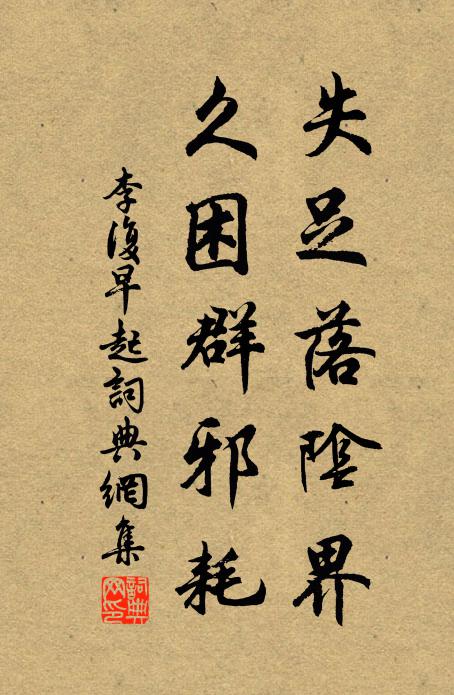 失足落陰界
久困群邪耗
李復早起詞典網集
詞典
网印